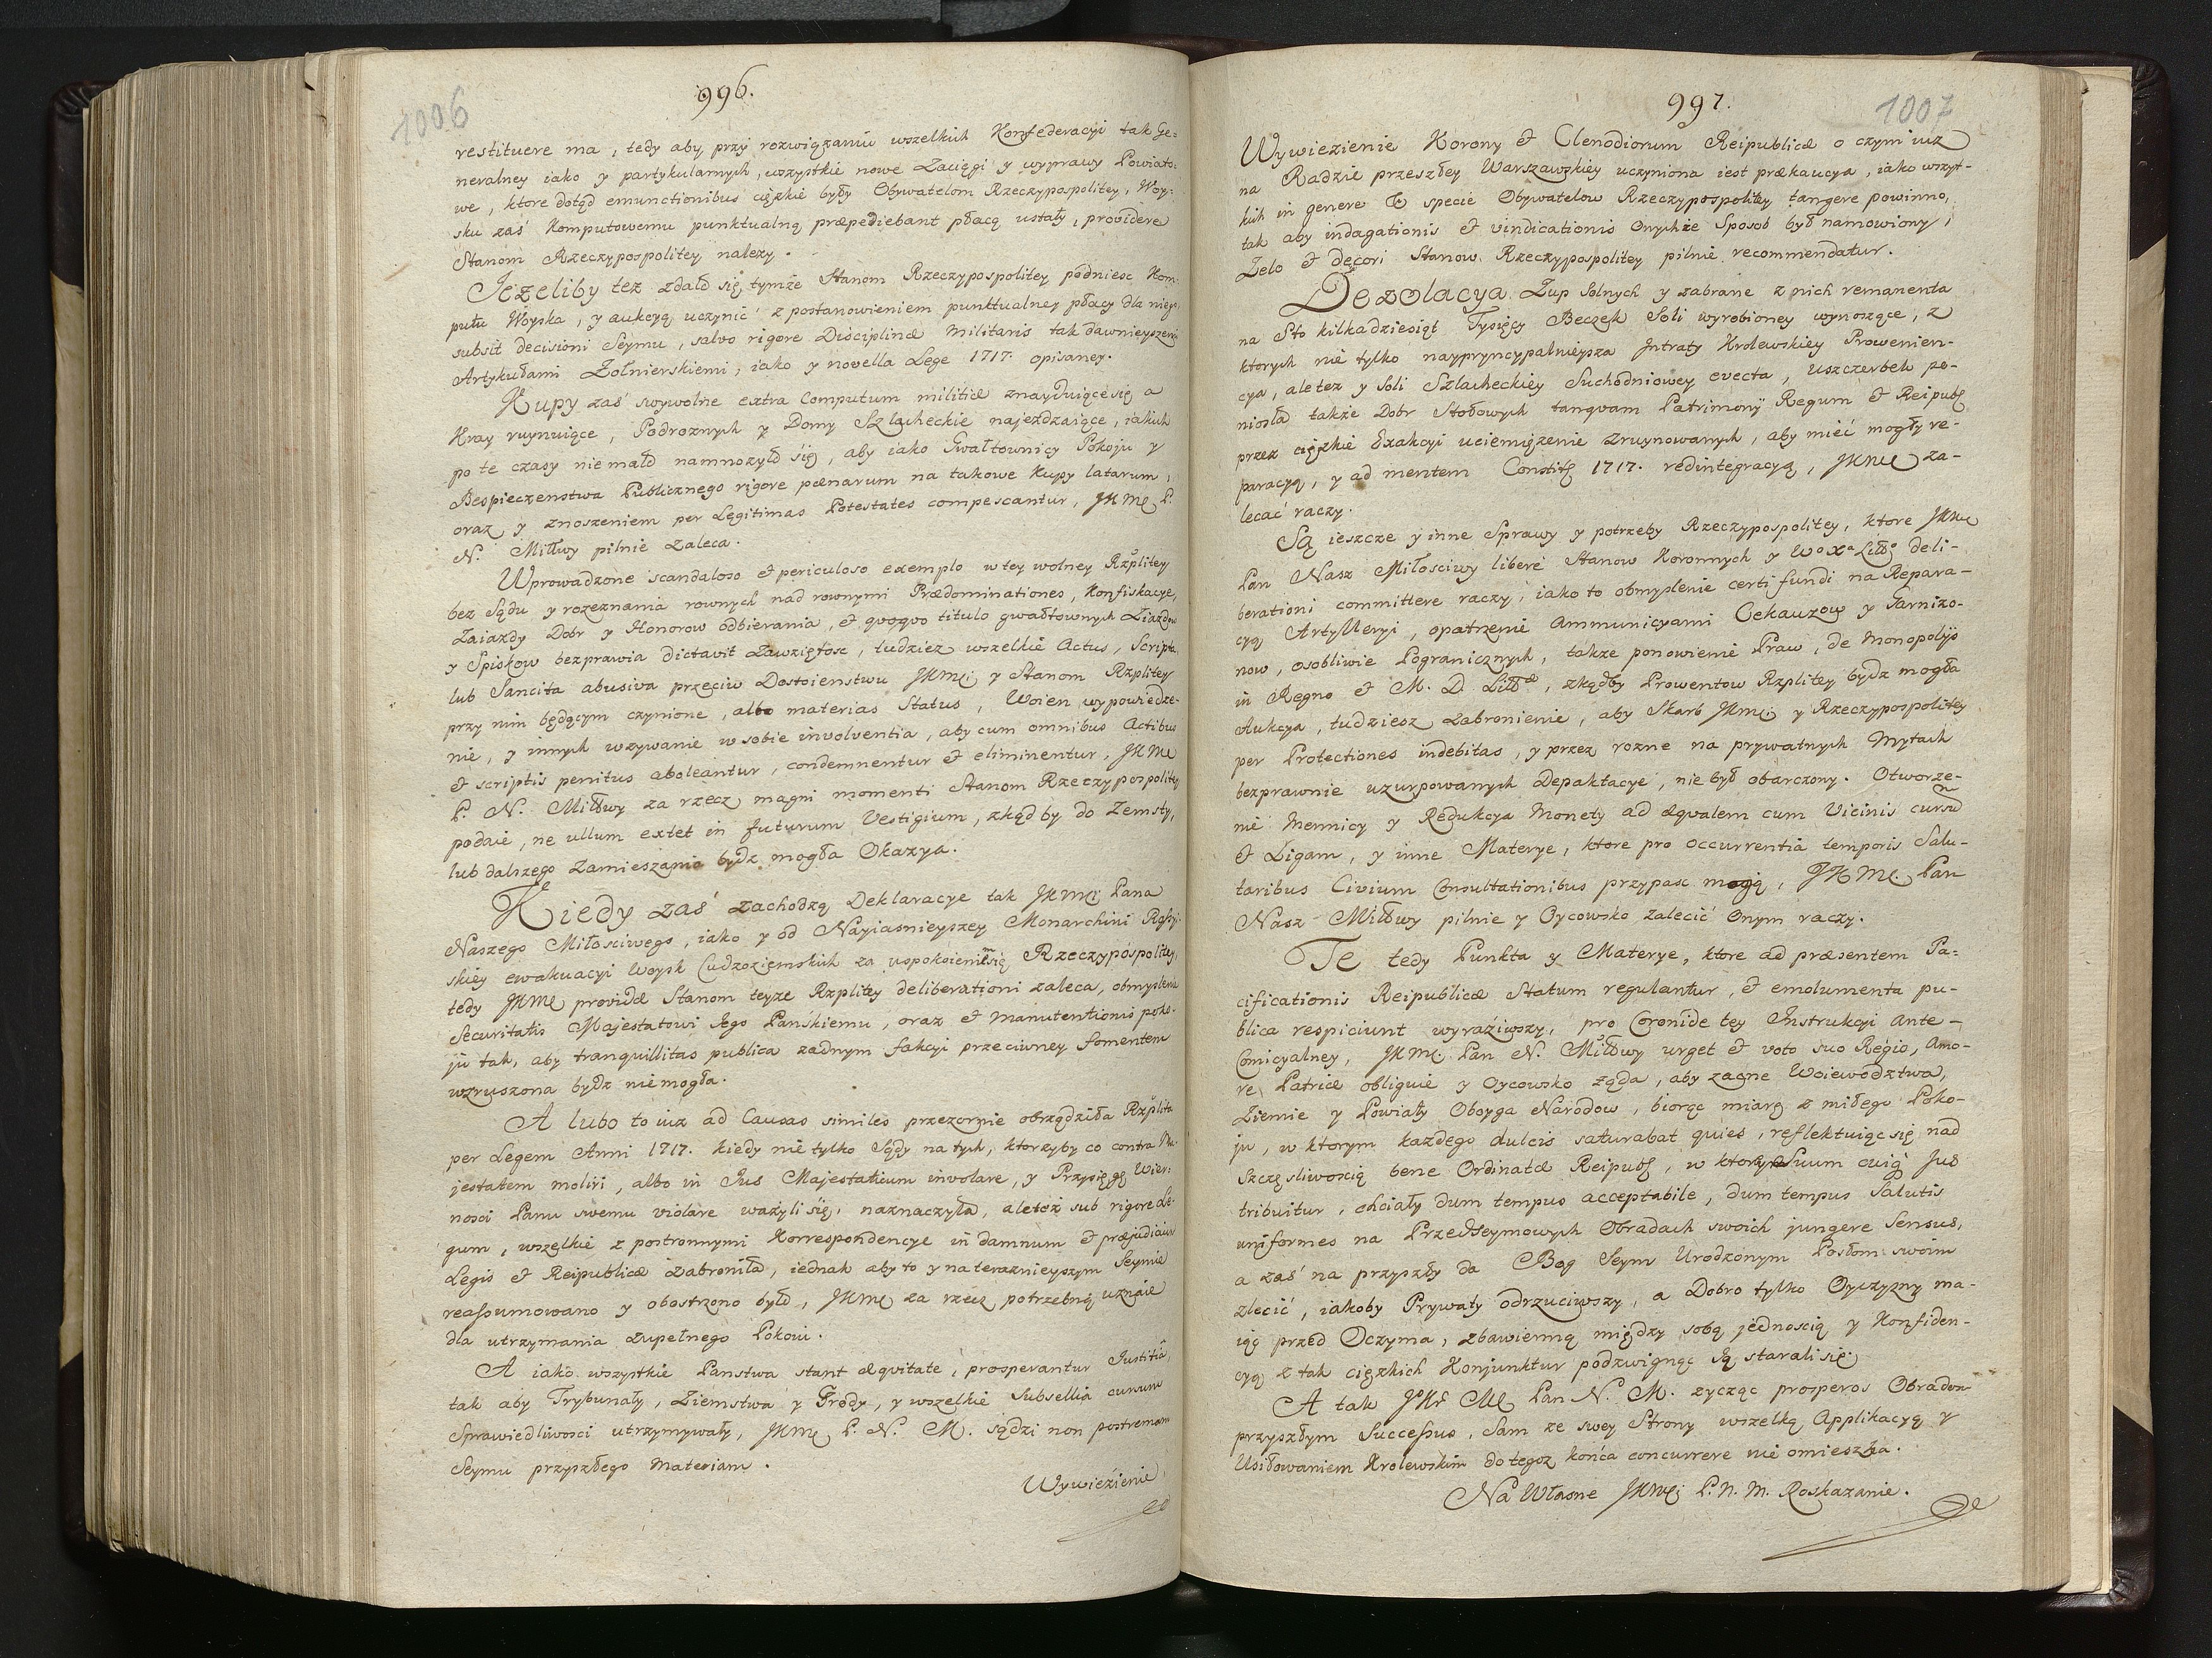 996.
1006
restituere ma, tedy aby przy rozwiązaniu wszelkich Konfederacyi tak Ge=
neralney iako y partykularnych, wszystkie nowe Zacięgi y wyprawy Powiato:
we, ktore dotąd emunctionibus ciężkie były Obywatelom Rzeczypospolitey, Woy:
sku zaś Komputowemu punktualną præpediebant płacą ustały, providere
Stanom Rzeczypospolitey nalezy.
Jezeliby tez zdało się tymże Stanom Rzeczypospolitey podniesc Kom:
putu Woyska, y aukcyą uczynić z postanowieniem punktualney płacy dla niego
subsit decisioni Seymu, salvo rigore Disciplinæ Militaris tak dawnieyszemi
Artykułami Zołnierskiemi, iako y novella Lege 1717. opisaney.
Kupy zaś swywolne extra Computum militiæ znayduiącesię a
Kray ruynuiące, Podroznych y Domy Szlacheckie najezdzaiące, iakich
po te czasy niemało namnozyło się, aby iako Gwałtownicy Pokoju y
Bespieczenstwa Publicznego rigore pœnarum na takowe Kupy latarum,
oraz y znoszeniem per Legitimas Potestates compescantur, JKMć P.
N. Miłłwy pilnie zaleca.
Wprowadzone scandaloso et periculoso exemplo w tey wolney Rzplitey
bez Sądu y rozeznania rownych nad rownymi Prædominationes, Konfiskacye,
Zaiazdy Dobr y Honorow odbierania, et quoquo titulo gwałtownych Ziazdow
y Spiskow bezprawia dictavit Zawziętosc, tudziez wszelkie Actus, Scripta,
lub Sancita abusiva przeciw Dostoienstwu JKMci y Stanom Rzplitey
przy nim będącym czynione, albo materias Status, Woien wypowiedze-
nie, y innych wzywanie w sobie involventia, aby cum omnibus Actibus
et scriptis penitus aboleantur, condemnentur et eliminentur, JKMć
P. N. Miłłwy za rzecz magni momenti Stanom Rzeczypospolitey
podaie, ne ullum extet in futurum Vestigium, zkąd by do Zemsty,
lub dalszego zamieszania bydz mogła Okazya.
Kiedy zaś zachodzą Deklaracye tak JKMci Pana
Naszego Miłosciwego, iako y od Nayiasnieyszey Monarchini Rossyi-
skiey ewakuacyi Woysk Cudzoziemskich za uspokoieniem się Rzeczypospolitey,
tedy JKMć providæ Stanom teyze Rzplitey deliberationi zaleca, obmyslenie
Securitatis Majestatowi Jego Pańskiemu, oraz et manutentionis poko-
ju tak, aby tranquillitas publica zadnym fakcyi przeciwney fomentem
wzruszona bydz niemogła.
A lubo to iuz ad Causas similes przezornie obrządziła Rzplita
per Legem Anni 1717. kiedy nie tylko Sądy na tych, ktorzyby co contra Ma-
jestatem moliri, albo in Jus Majestaticum involare, y Przysięgę Wier:
nosci Panu swemu violare wazyli się, naznaczyła, ale tez sub rigore Le-
gum, wszelkie z postronnymi Korrespondencye in damnum et præjudicium
Legis et Reipublicæ zabroniła, iednak aby to y na teraznieyszym Seymie
reassumowano y obostrzono było, JKMć za rzecz potrzebną uznaie
dla utrzymania zupełnego Pokoiu.
A iako wszystkie Panstwa stant æquitate, prosperantur Justitiâ,
tak aby Trybunały, Ziemstwa y Grody, y wszelkie Subsellia cursum
Sprawiedliwosci utrzymywały, JKMć P. N. M. sądzi non postremam
Seymu przyszłego Materiam.
Wywiezienie
997.
1007
Wywiezienie Korony et Clenodiorum Reipublicæ o czym iuz
na Radzie przeszłey Warszawskiey uczyniona iest prækaucya, iako wszyt-
kich in genere et specie Obywatelow Rzeczypospolitey tangere powinno,
tak aby indagationis et vindicationis Onychze Sposob był namowiony,
Zelo et decori Stanow Rzeczypospolitey pilnie recommendatur.
Dezolacya Zup Solnych y zabrane z nich remanenta
na Sto kilkadziesiąt Tysięcy Beczek Soli wyrobioney wynoszące, z
ktorych nie tylko naypryncypalnieysza Intraty Krolewskiey Prowenien-
cya, ale tez y Soli Szlacheckiey Suchodniowey evecta, uszczerbek po-
niosła takze Dobr Stołowych tanquam Patrimony Regum et Reipubl
przez ciężkie Exakcyi uciemiężenie zruynowanych, aby mieć mogły re-
paracyą, y ad mentem Constit 1717. redintegracyą, JKMć za-
lecać raczy.
Są ieszcze y inne Sprawy y potrzeby Rzeczypospolitey, ktore JKMć
Pan Nasz Miłosciwy libere Stanow Koronnych y Wo Xa Littgo deli-
berationi committere raczy, iako to obmyslenie certi fundi na Repara-
cyą Artylleryi, opatrzenie Ammunicyami Cekauzow y Garnizo-
now, osobliwie Pogranicznych, takze ponowienie Praw, de Monopolys
in Regno et M. D. Littæ, zkądby Prowentow Rzplitey bydz mogła
Aukcya, tudziesz zabronienie, aby Skarb JKMci y Rzeczypospolitey
per Protectiones indebitas, y przez rozne na prywatnych Mytach
bezprawnie uzurpowanych Depaktacye, nie był obarczony. Otworze-
nie Mennicy y Redukcya Monety ad æqualem cum Vicinis cursum
et Ligam, y inne Materye, ktore pro occurrentia temporis Salu-
taribus Civium Consultationibus przypasc mogą, JKMć Pan
Nasz Miłłwy pilnie y Oycowsko zalecić Onym raczy.
Te tedy Punkta y Materye, ktore ad præsentem Pa:
cificationis Reipublicæ Statum regulantur, et emolumenta pu-
blica respiciunt wyraziwszy, pro Coronide tey Instrukcyi Ante-
Comicyalney, JKMć Pan N. Miłłwy urget et voto suo Regio, Amo-
re Patriæ obliguie y Oycowsko ząda, aby zacne Woiewodztwa,
Ziemie y Powiaty Oboyga Narodow, biorąc miarę z miłego Poko-
ju, w ktorym kazdego dulcis saturabat quies, reflektuiąc się nad
Szczęsliwoscią bene Ordinatæ Reipubl, w ktorym Suum cuiq Jus
tribuitur, chciały dum tempus acceptabile, dum tempus Salutis
uniformes na PrzedSeymowych Obradach swoich jungere Sensus,
a zaś na przyszły da Bog Seym Urodzonym Posłom swoim
zlecić, iakoby Prywaty odrzuciwszy, a Dobro tylko Oyczyzny ma-
iąc przed Oczyma, zbawienną między sobą jednoscią y Konfiden-
cyą z tak cięzkich Konjunktur podzwignąć ją starali się.
A tak JoKr Mć Pan N. M. zycząc prosperos Obradom
przyszłym Successus, Sam ze swey Strony wszelką Applikacyą y
Usiłowaniem Krolewskim do tegoz końca concurrere nie omieszka.
Na Własne JKMci P. N. M. Roskazanie.